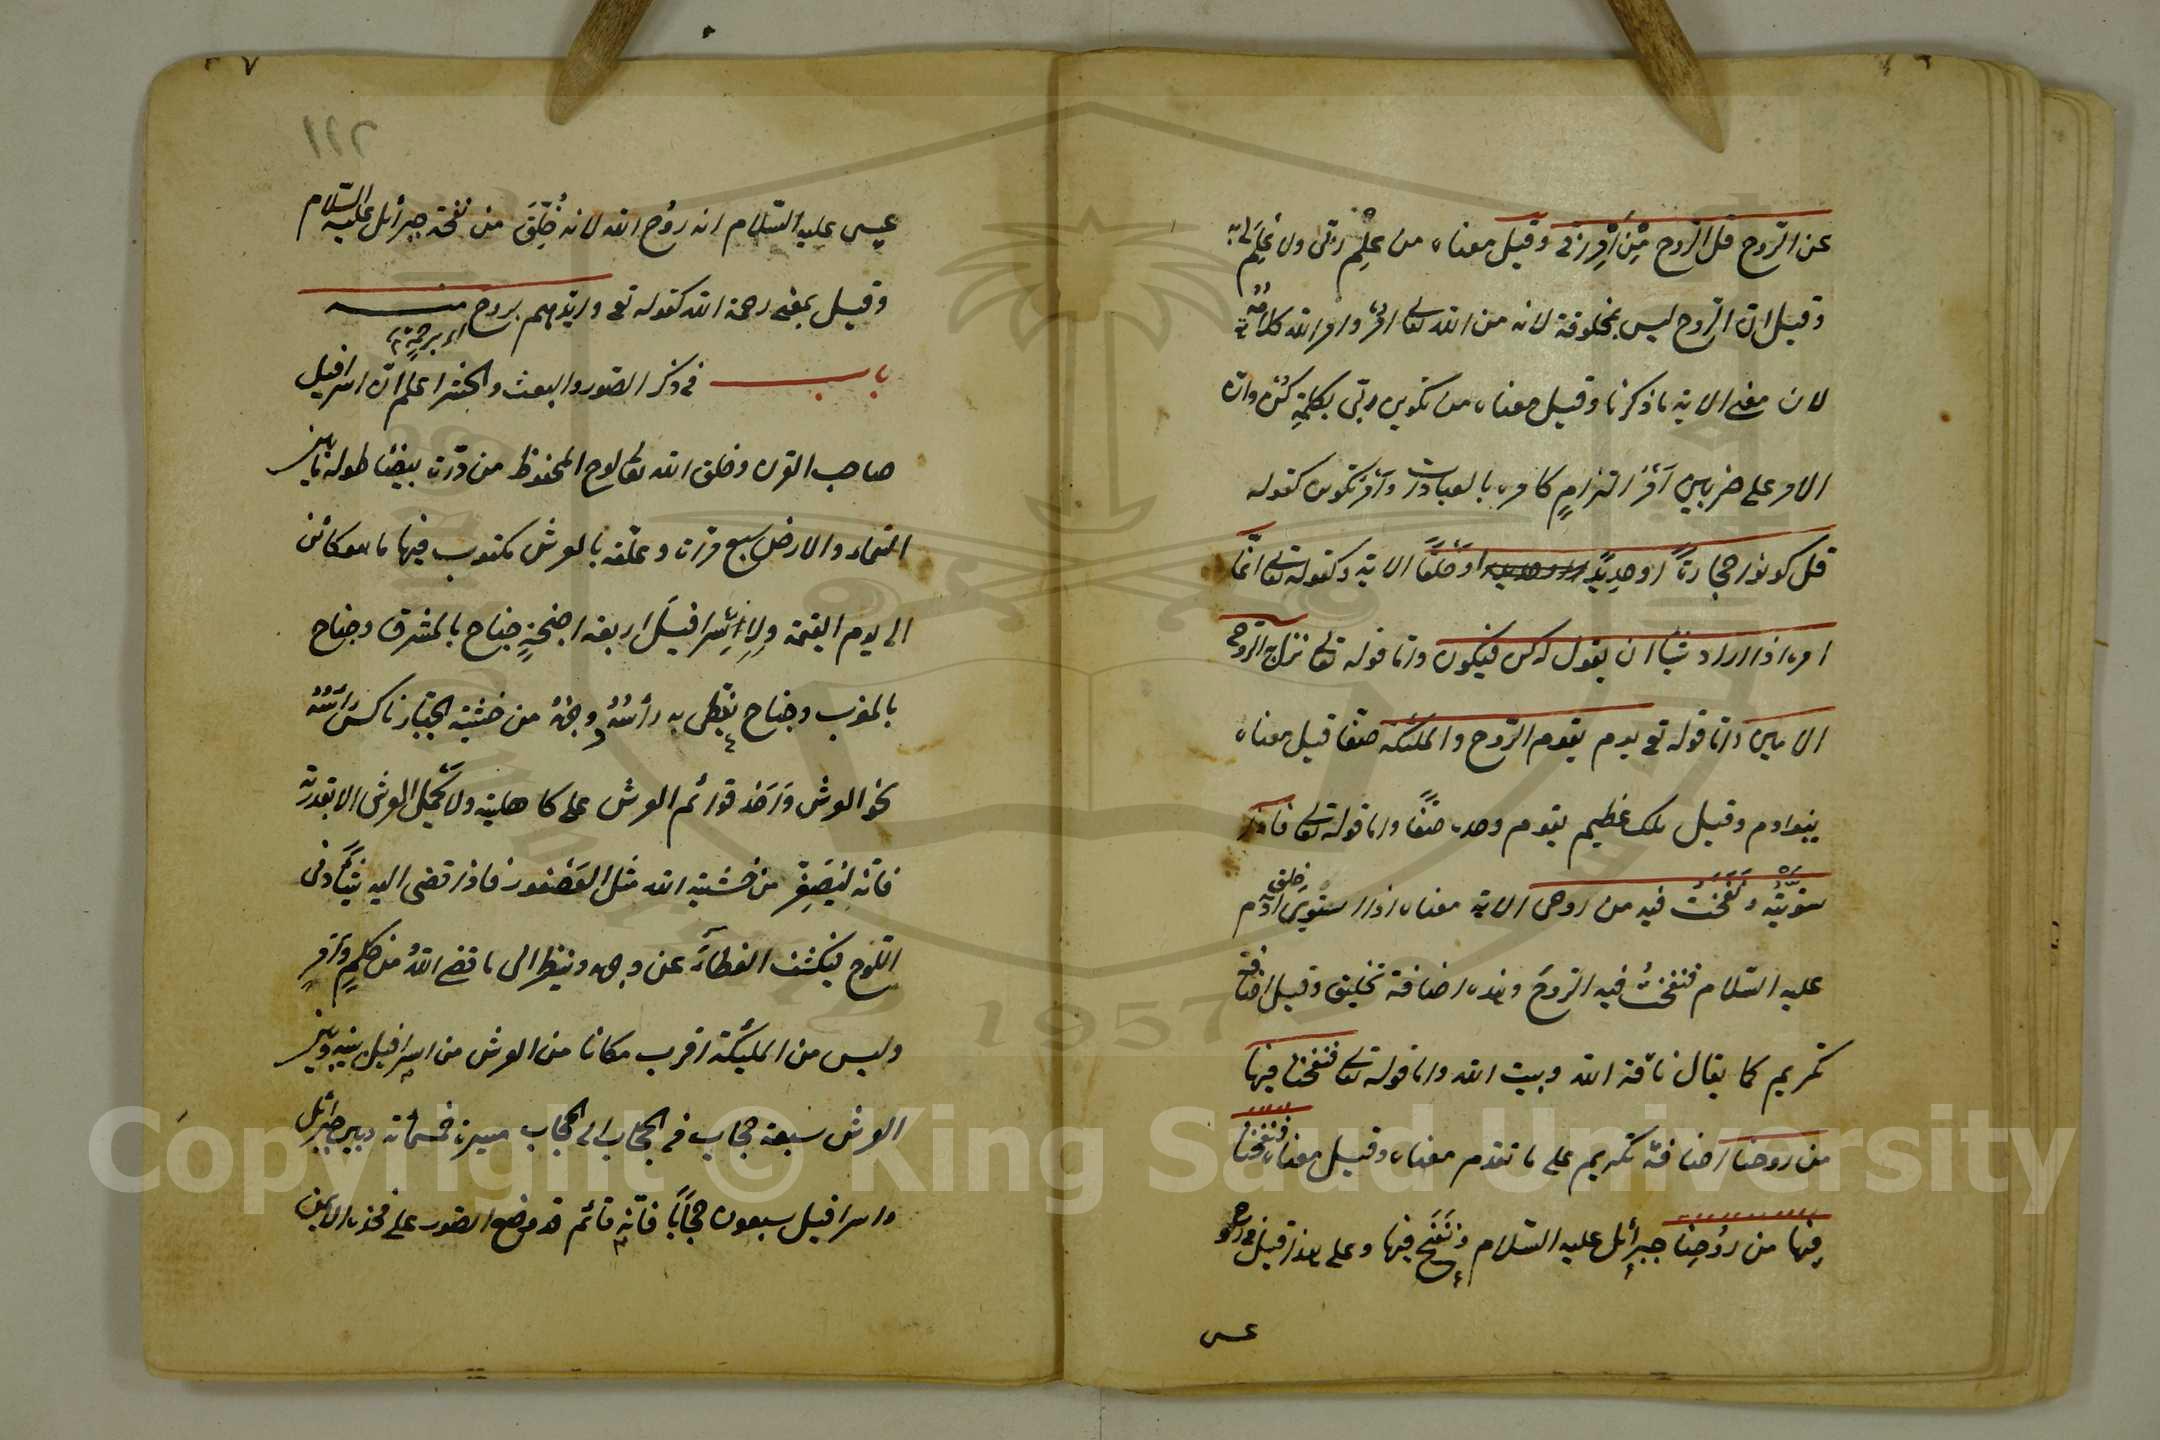 عن الروح قل الروح مِنْ اَمْرِ ربّى وقيل معناه من عِلْمِ ربّى ولا عِلْمَ لى به
وقيل ان الروح ليس بمخلوقة لانه من الله تعالى اَمْرُه وامر الله كلامُهُ
لان معنى الاية ما ذكرنا وقيل معناه من تكوين ربّى بكلمةِ كُنْ وانّ
الامر على ضربين اَمْرُ الزامٍ كامره بالعبادات واَمْر تكوين كقوله
قل كونوا حجارةً او حديدًا او خلقًا الاية وكقوله تعالى انّما
امره اذا اراد شيئًا ان يقول له كن فيكون وامّا قوله تعالى نزل به الروح
الامين وامّا قوله تع يوم يقوم الروح والملئكة صفّا قيل معناه
بنو ادم وقيل ملك عظيم يقوم وحده صفًّا وامّا قوله تعالى فاذا
سوّيته ونَفَخْتُ فيه من روحى الاية معناه اذا استوى خلق آدم
عليه السّلام فنفختُ فيه الروحَ وهذه اضافة تخليق وقيل اضافة
تكريم كما يقال ناقة الله وبيت الله وامّا قوله تعالى فنفخنا فيها
من روحنا اضافة تكريم على ما تقدم معناه وقيل معناه فنفخنا
فيها من رُوْحِنا جبرائل عليه السّلام نَفَخَ فيها وعلى هذا قيل فى روح
عيسى
عيسى عليه السّلام انه رُوْح الله لانه خُلِقَ من نفخة جبرائل عليه السّلام
وقيل بمعنى رحمة الله كقوله تع وايّدهم بروح منه
اى برحمةٍ
باب فى ذكر الصّور والبعث والحشر اعلم انّ اسرافيل
صاحب القرن وخلق الله تعالى لوح المحفوظ من درّة بيضا طوله ما بين
السّماء والارض سبع مرّات وعلّقه بالعرش مكتوب فيها ما هو كائن
الى يوم القيمة ولِاِسْرافيلَ اربعة اجنحةٍ جناح بالمشرق وجناح
بالمغرب وجناح يغطى به رأسُهُ ووجهُهُ من خشية الجبّار ناكس رَأسُهُ
نحو العرش وَاَخَذ قوائم العرش على كاهليه ولا يُحْمَل العرش الا بقدرته
فانّه لَيَصغر من خشية الله مثل العُصْفور فاذا قضى اليه شيْأً دنى
اللّوح فيكشف الغطاءَ عن وجهه وينظر الى ما قضى اللهُ من حكمٍ وَاَمْرٍ
وليس من الملئكة اقرب مكانا من العرش من اسرافيل بينه وبين
العرش سبعة حجاب فى الحجاب الى الحجاب مسيرة خمسمائة وبين جبرائل
واسرافيل سبعون حِجَابًا فانّه قائم قد وضع الصّور على فخذه الايمن
١٢٢
Copyright © King Saud University
1957